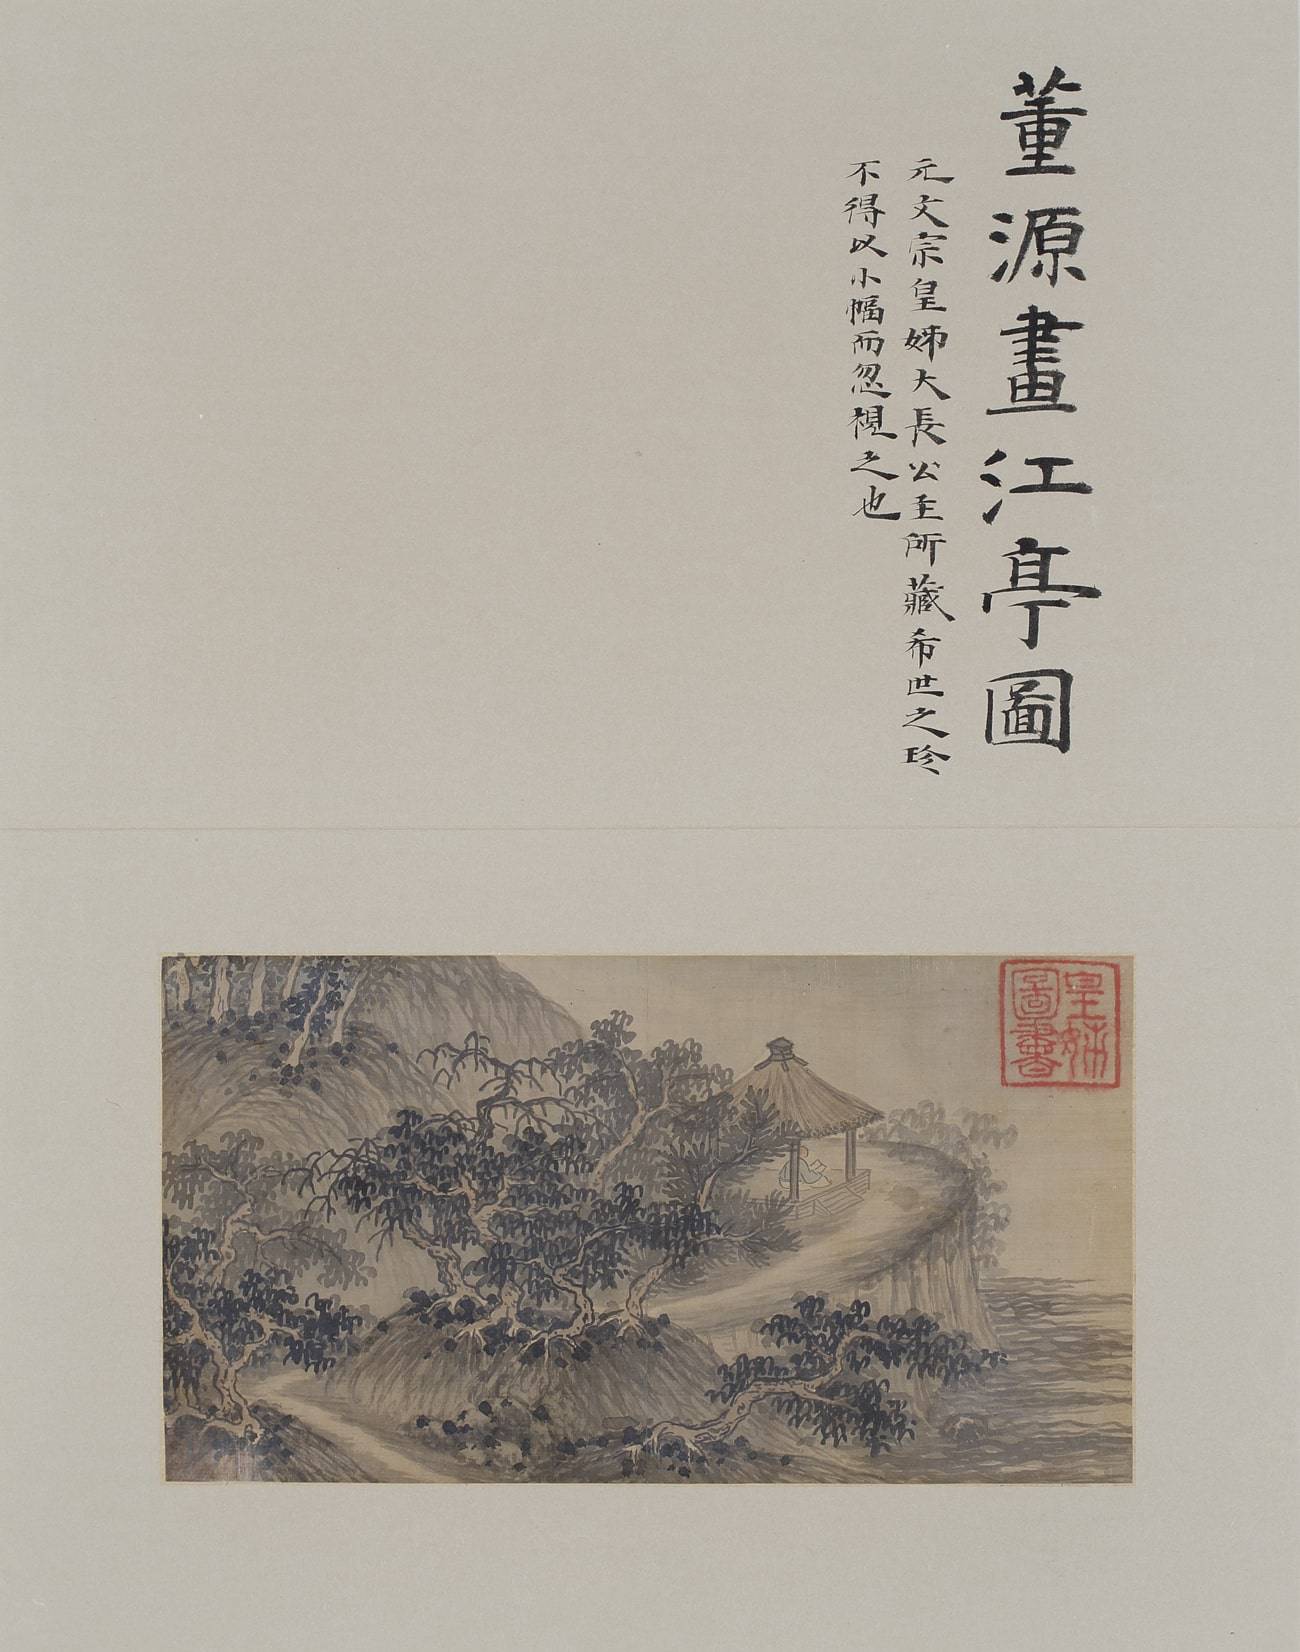 董源畫江亭圖
元文宗皇姊大長公主所藏希世之珍
不得以小幅而忽視之也
皇姊圖書